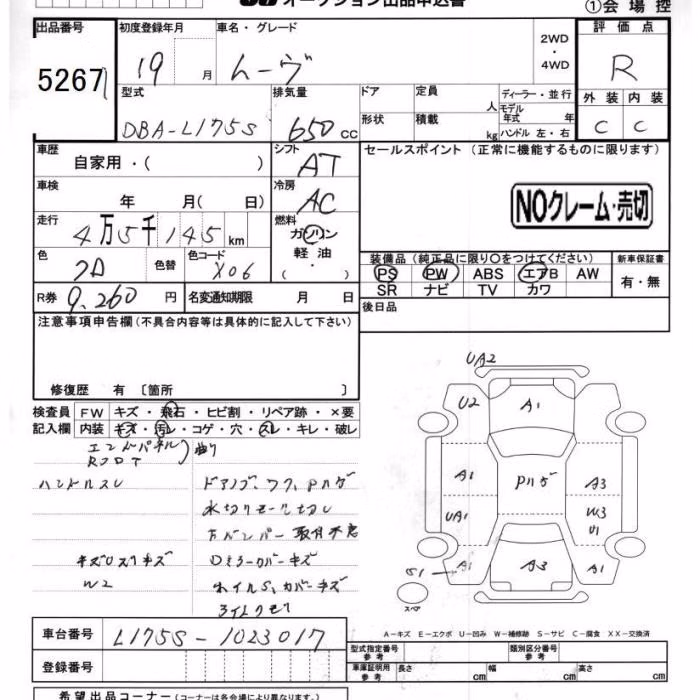 オークション出品申込書
①会場控
出品番号 初度登録年月 車名・グレード 2WD・4WD 評価点
5267 19 月 ムーヴ R
型式 排気量 ドア 定員 人 ディーラー・並行 外装 内装
DBA-L175S 650 cc 形状 積載 kg モデル年式 年 ハンドル 左・右 C C
車歴 シフト セールスポイント (正常に機能するものに限ります)
自家用・( ) AT
車検 冷房
年 月( 日) AC
NOクレーム・売切
走行 燃料
4万5千145 km ガソリン
軽油
(・)
色 色替 色コード
X06
装備品(純正品に限り○をつけてください) 新車保証書
PS PW ABS エアB AW 有・無
SR ナビ TV カワ
R券 9,260 円 名変通知期限 月 日
後日品
注意事項申告欄(不具合内容等は具体的に記入して下さい)
修復歴 有 〔箇所 〕
検査員 FW キズ・飛石・ヒビ割・リペア跡・×要
記入欄 内装 キズ・汚レ・コゲ・穴・スレ・キレ・破レ
エンドパネル 曲り
ハンドルスレ
水切りモール切レ
Fバンパー取付不良
Dミラーカバーキズ
W2
ホイルS、カバーキズ
UA2
U2 A1
A1 Pハゲ A3
UA1 W3
U1
S1 A1 A3 A1
スペア
A-キズ E-エクボ U-凹み W-補修跡 S-サビ C-腐食 XX-交換済
車台番号 L175S-1023017
登録番号
型式指定番号 参考 類別区分番号 参考
車庫証明用 参考 長さ cm 幅 cm 高さ cm
希望出品コーナー(コーナーは各会場により異なります。)